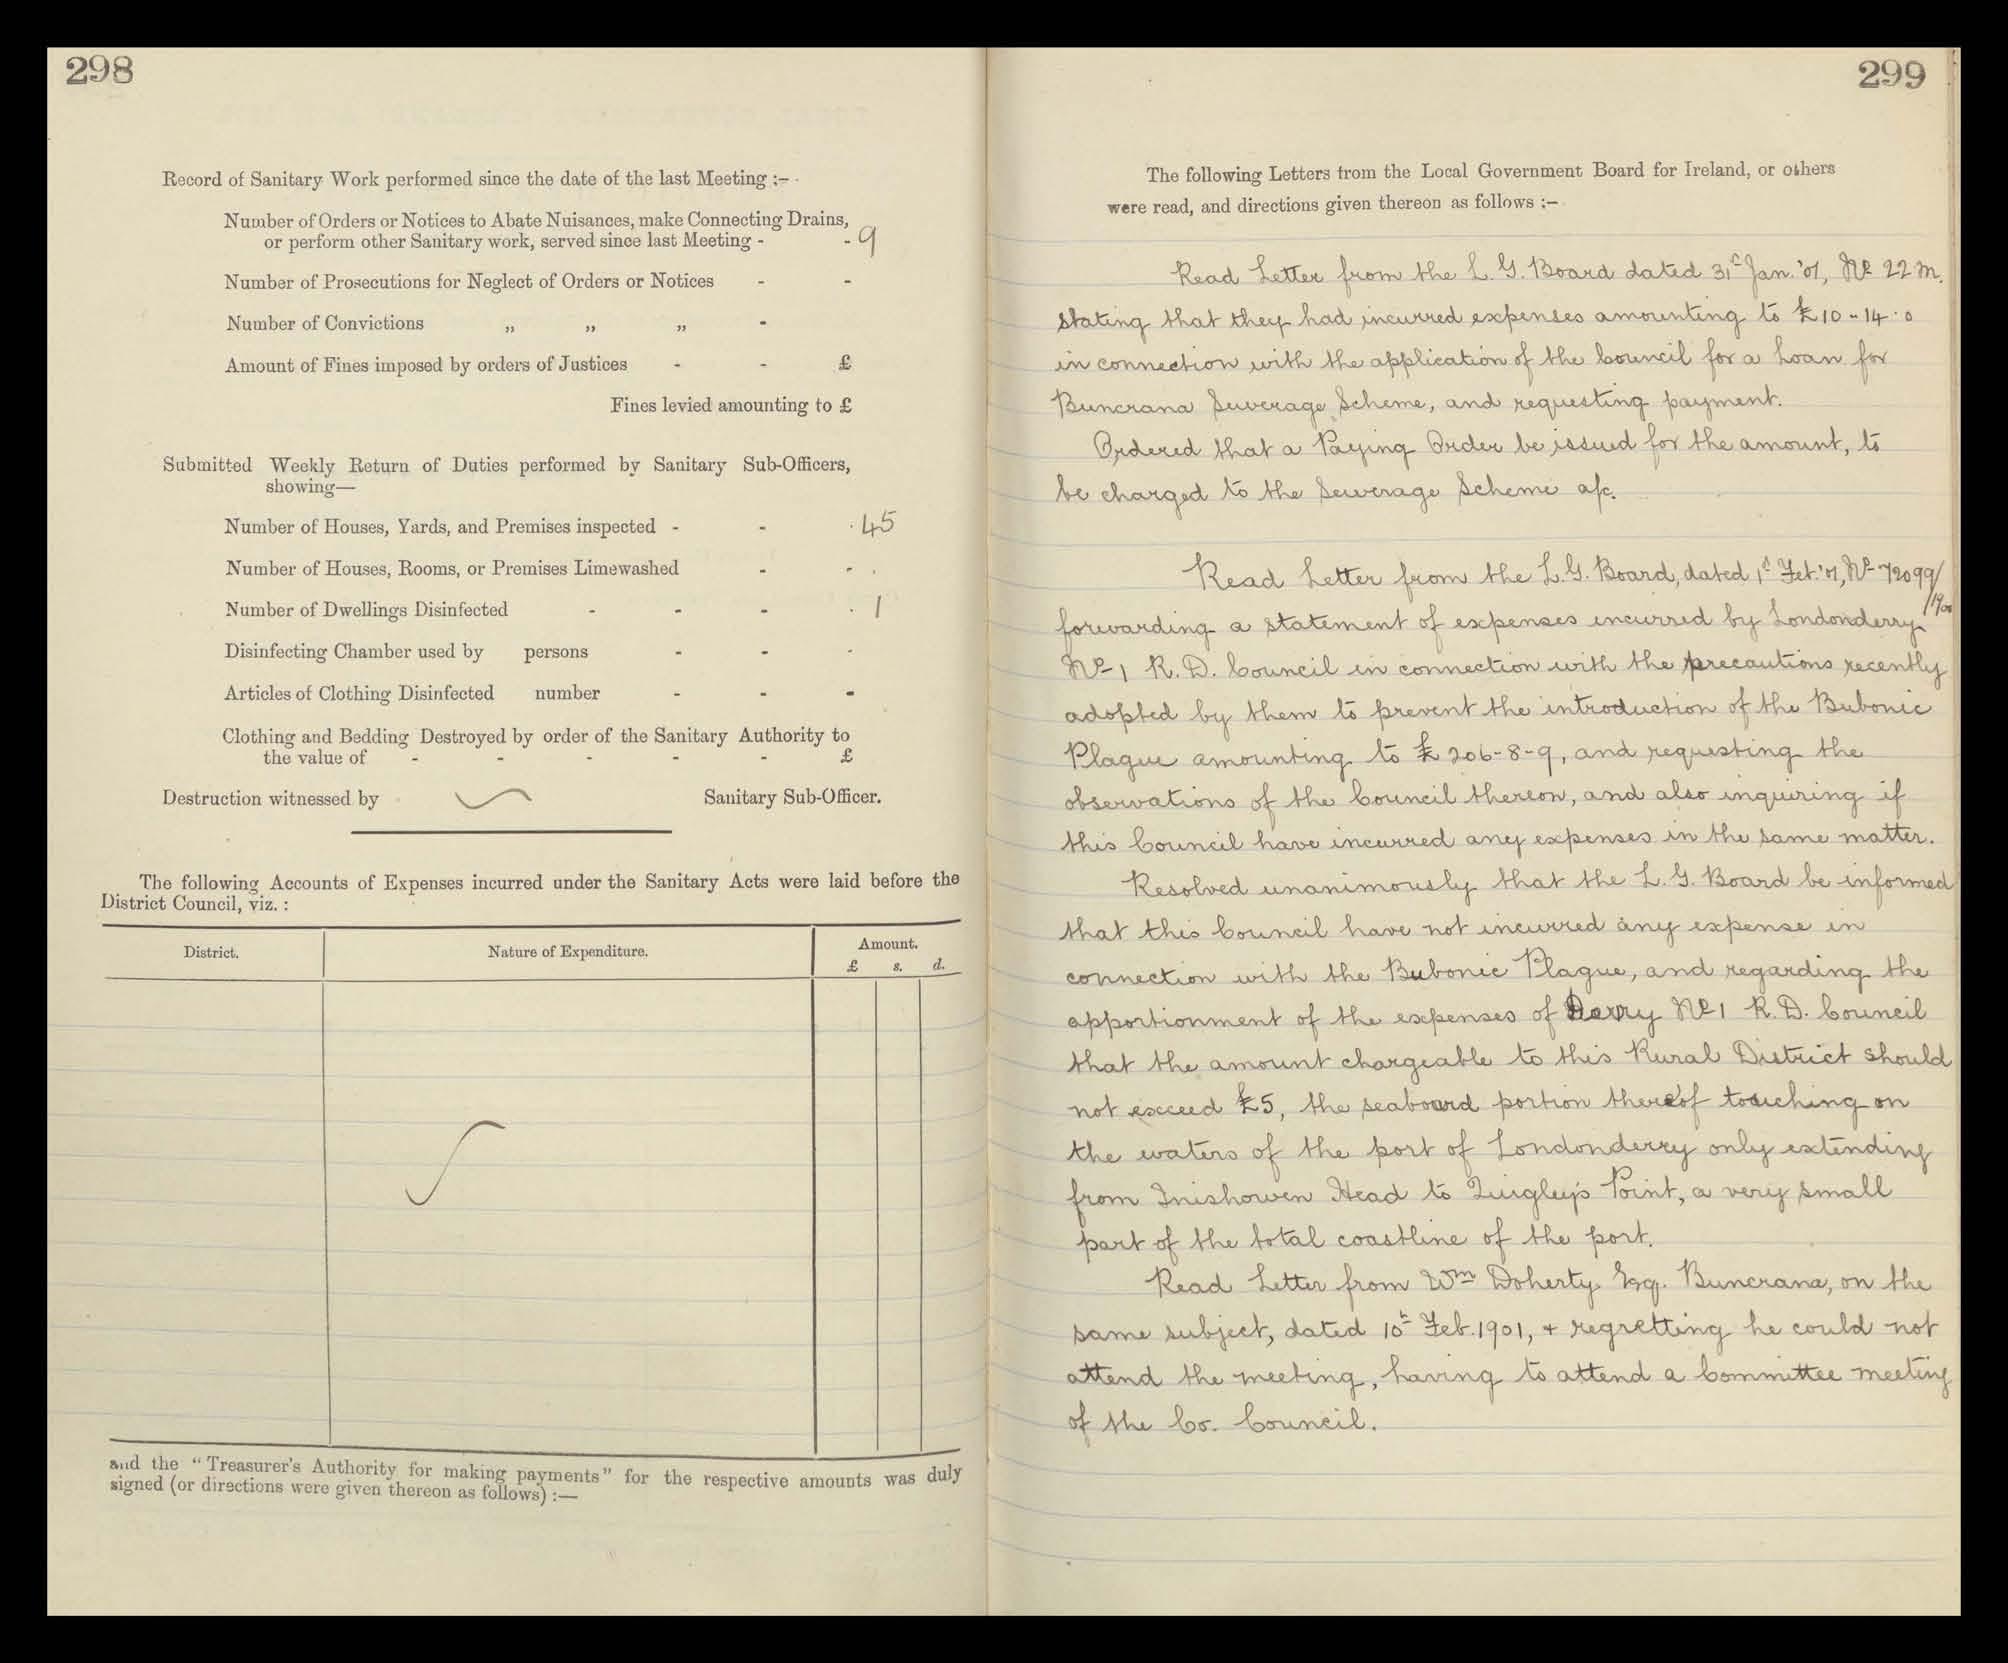 298
Record of Sanitary Work performed since the date of the last Meeting :-
Number of Orders or Notices to Abate Nuisances, make Connecting Drains,
or perform other Sanitary work, served since last Meeting - - 9
Number of Prosecutions for Neglect of Orders or Notices - -
Number of Convictions „ „ „ -
Amount of Fines imposed by orders of Justices - - £
Fines levied amounting to £
Submitted Weekly Return of Duties performed by Sanitary Sub-Officers,
showing—
Number of Houses, Yards, and Premises inspected - - 45
Number of Houses, Rooms, or Premises Limewashed - -
Number of Dwellings Disinfected - - - 1
Disinfecting Chamber used by persons - - -
Articles of Clothing Disinfected number - - -
Clothing and Bedding Destroyed by order of the Sanitary Authority to
the value of - - - - - £
Destruction witnessed by Sanitary Sub-Officer.
The following Accounts of Expenses incurred under the Sanitary Acts were laid before the
District Council, viz. :
District. Nature of Expenditure. Amount.
£ s. d.
and the "Treasurer's Authority for making payments" for the respective amounts was duly
signed (or directions were given thereon as follows) :—
299
The following Letters from the Local Government Board for Ireland, or others
were read, and directions given thereon as follows :-
Read Letter from the L. G. Board dated 31st Jan. '01, No 22 M.
stating that they had incurred expenses amounting to £10-14-0
in connection with the application of the Council for a Loan for
Buncrana Sewerage Scheme, and requesting payment.
Ordered that a Paying Order be issued for the amount, to
be charged to the Sewerage Scheme a/c.
Read Letter from the L. G. Board, dated 1st Feb. '01, No 72099/
/1900
forwarding a statement of expenses incurred by Londonderry
No 1 R. D. Council in connection with the precautions recently
adopted by them to prevent the introduction of the Bubonic
Plague amounting to £206-8-9, and requesting the
observations of the Council thereon, and also inquiring if
this Council have incurred any expenses in the same matter.
Resolved unanimously that the L. G. Board be informed
that this Council have not incurred any expense in
connection with the Bubonic Plague, and regarding the
apportionment of the expenses of Derry No 1 R. D. Council
that the amount chargeable to this Rural District should
not exceed £5, the seaboard portion thereof touching on
the waters of the port of Londonderry only extending
from Inishowen Head to Quigley's Point, a very small
part of the total coastline of the port.
Read Letter from Wm Doherty Esq. Buncrana, on the
same subject, dated 10th Feb. 1901, + regretting he could not
attend the meeting, having to attend a Committee meeting
of the Co. Council.